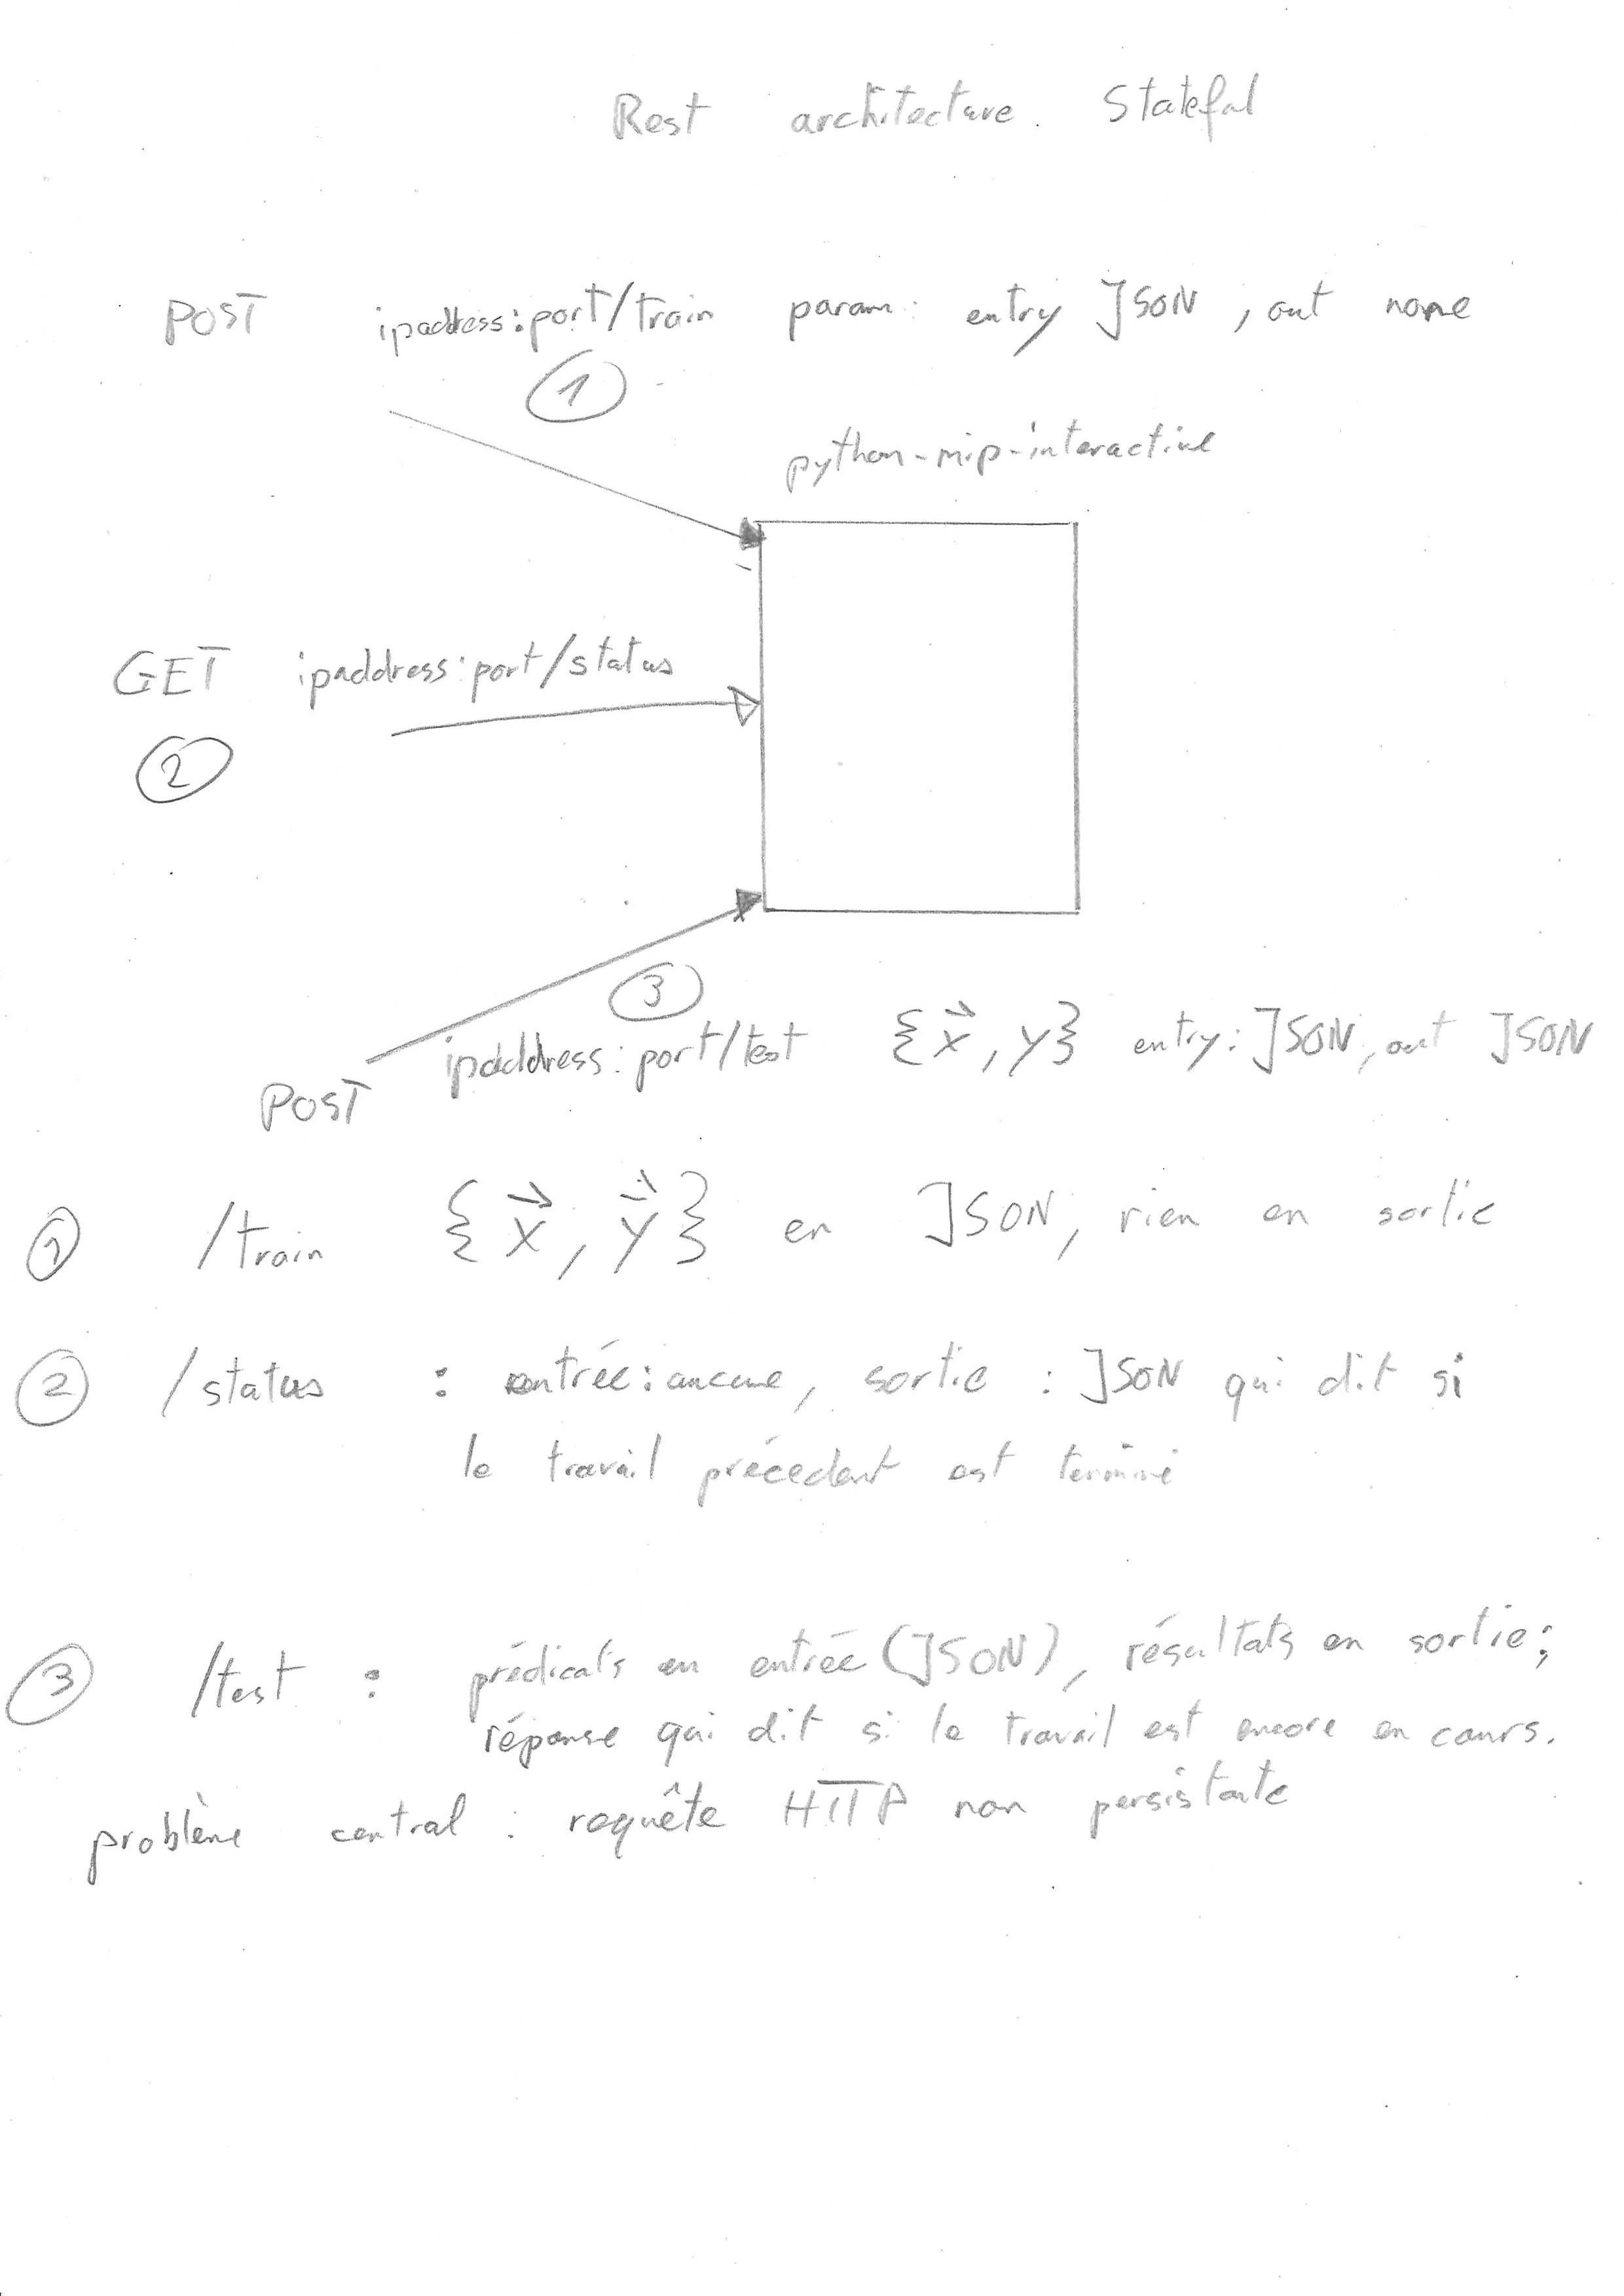 Rest architecture. Stateful
POST ipaddress:port/train param: entry JSON, out none
1
python-mip-interactive
GET ipaddress:port/status
2
3
ipaddress:port/test {x⃗, y} entry: JSON, out JSON
POST
1 /train {x⃗, y⃗} en JSON, rien en sortie
2 /status : entrée: aucune, sortie : JSON qui dit si
le travail précédent est terminé
3 /test : prédicats en entrée (JSON), résultats en sortie;
réponse qui dit si le travail est encore en cours.
problème central : requête HTTP non persistante